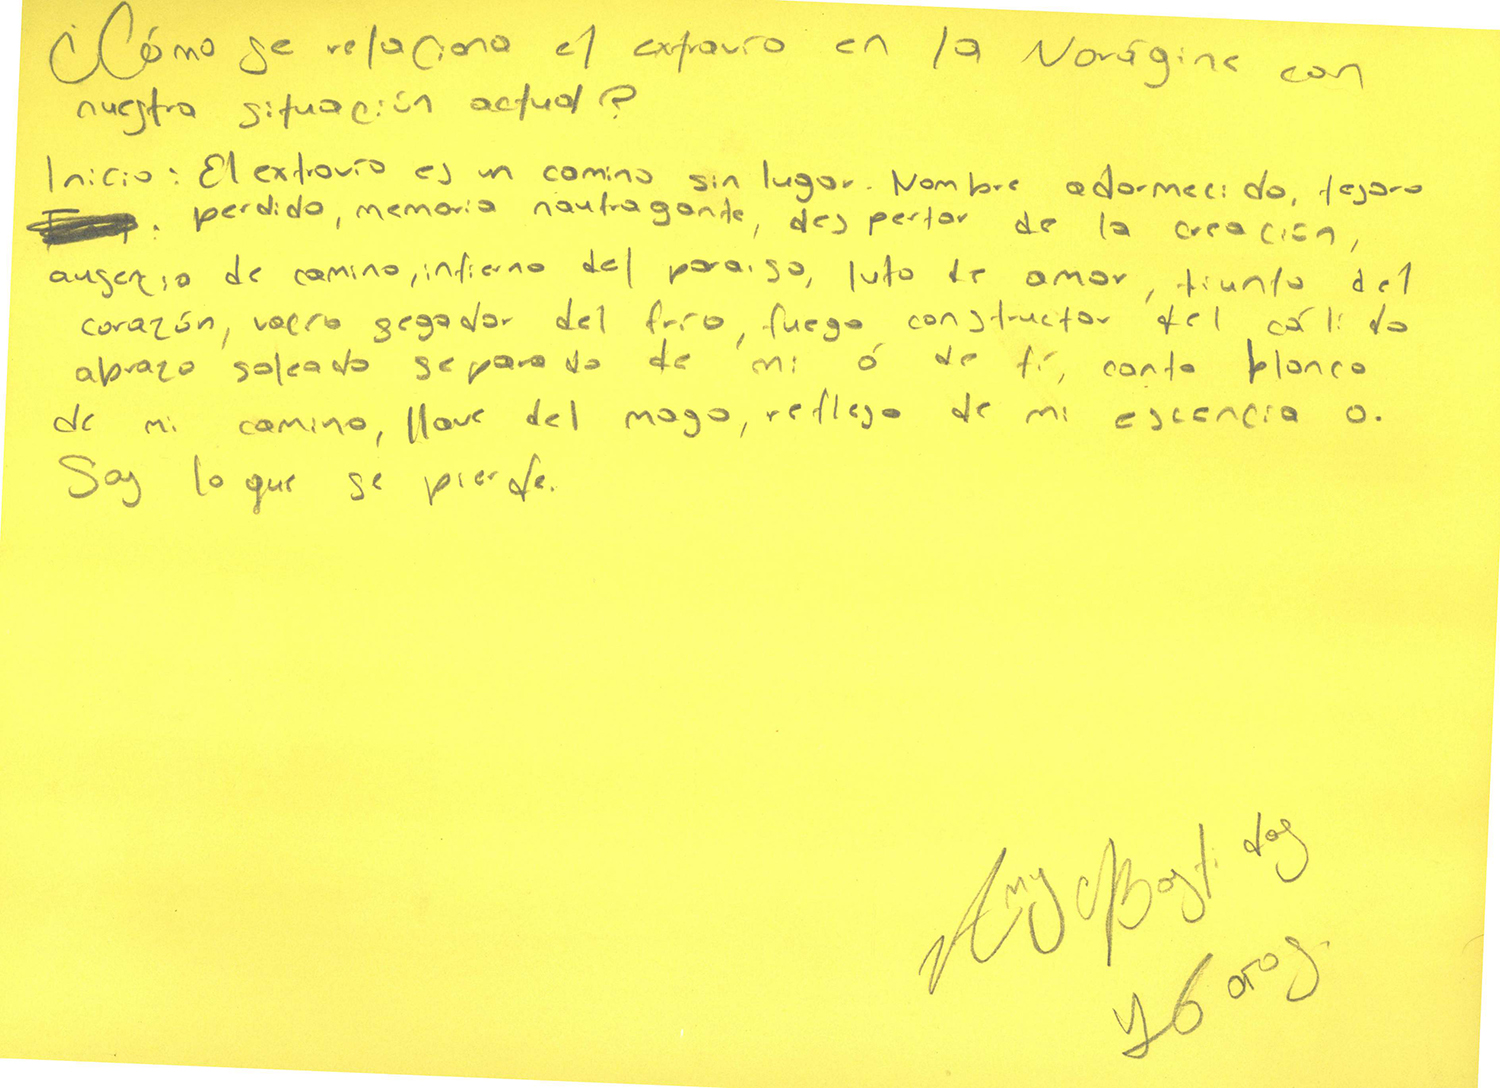 ¿Cómo se relaciona el extravío en la Vorágine con
nuestra situación actual?
Inicio: El extravío es un camino sin lugar. Nombre adormecido, tesoro
: perdido, memoria naufragante, despertar de la creación,
ausencia de camino, infierno del paraiso, luto de amor, tiunfo del
corazón, vacío segador del frío, fuego constructor del cálido
abrazo soleado separado de mi ó de tí, canto blanco
de mi camino, llave del mago, reflejo de mi escencia o.
Soy lo que se pierde.
Amy Bastidas
y